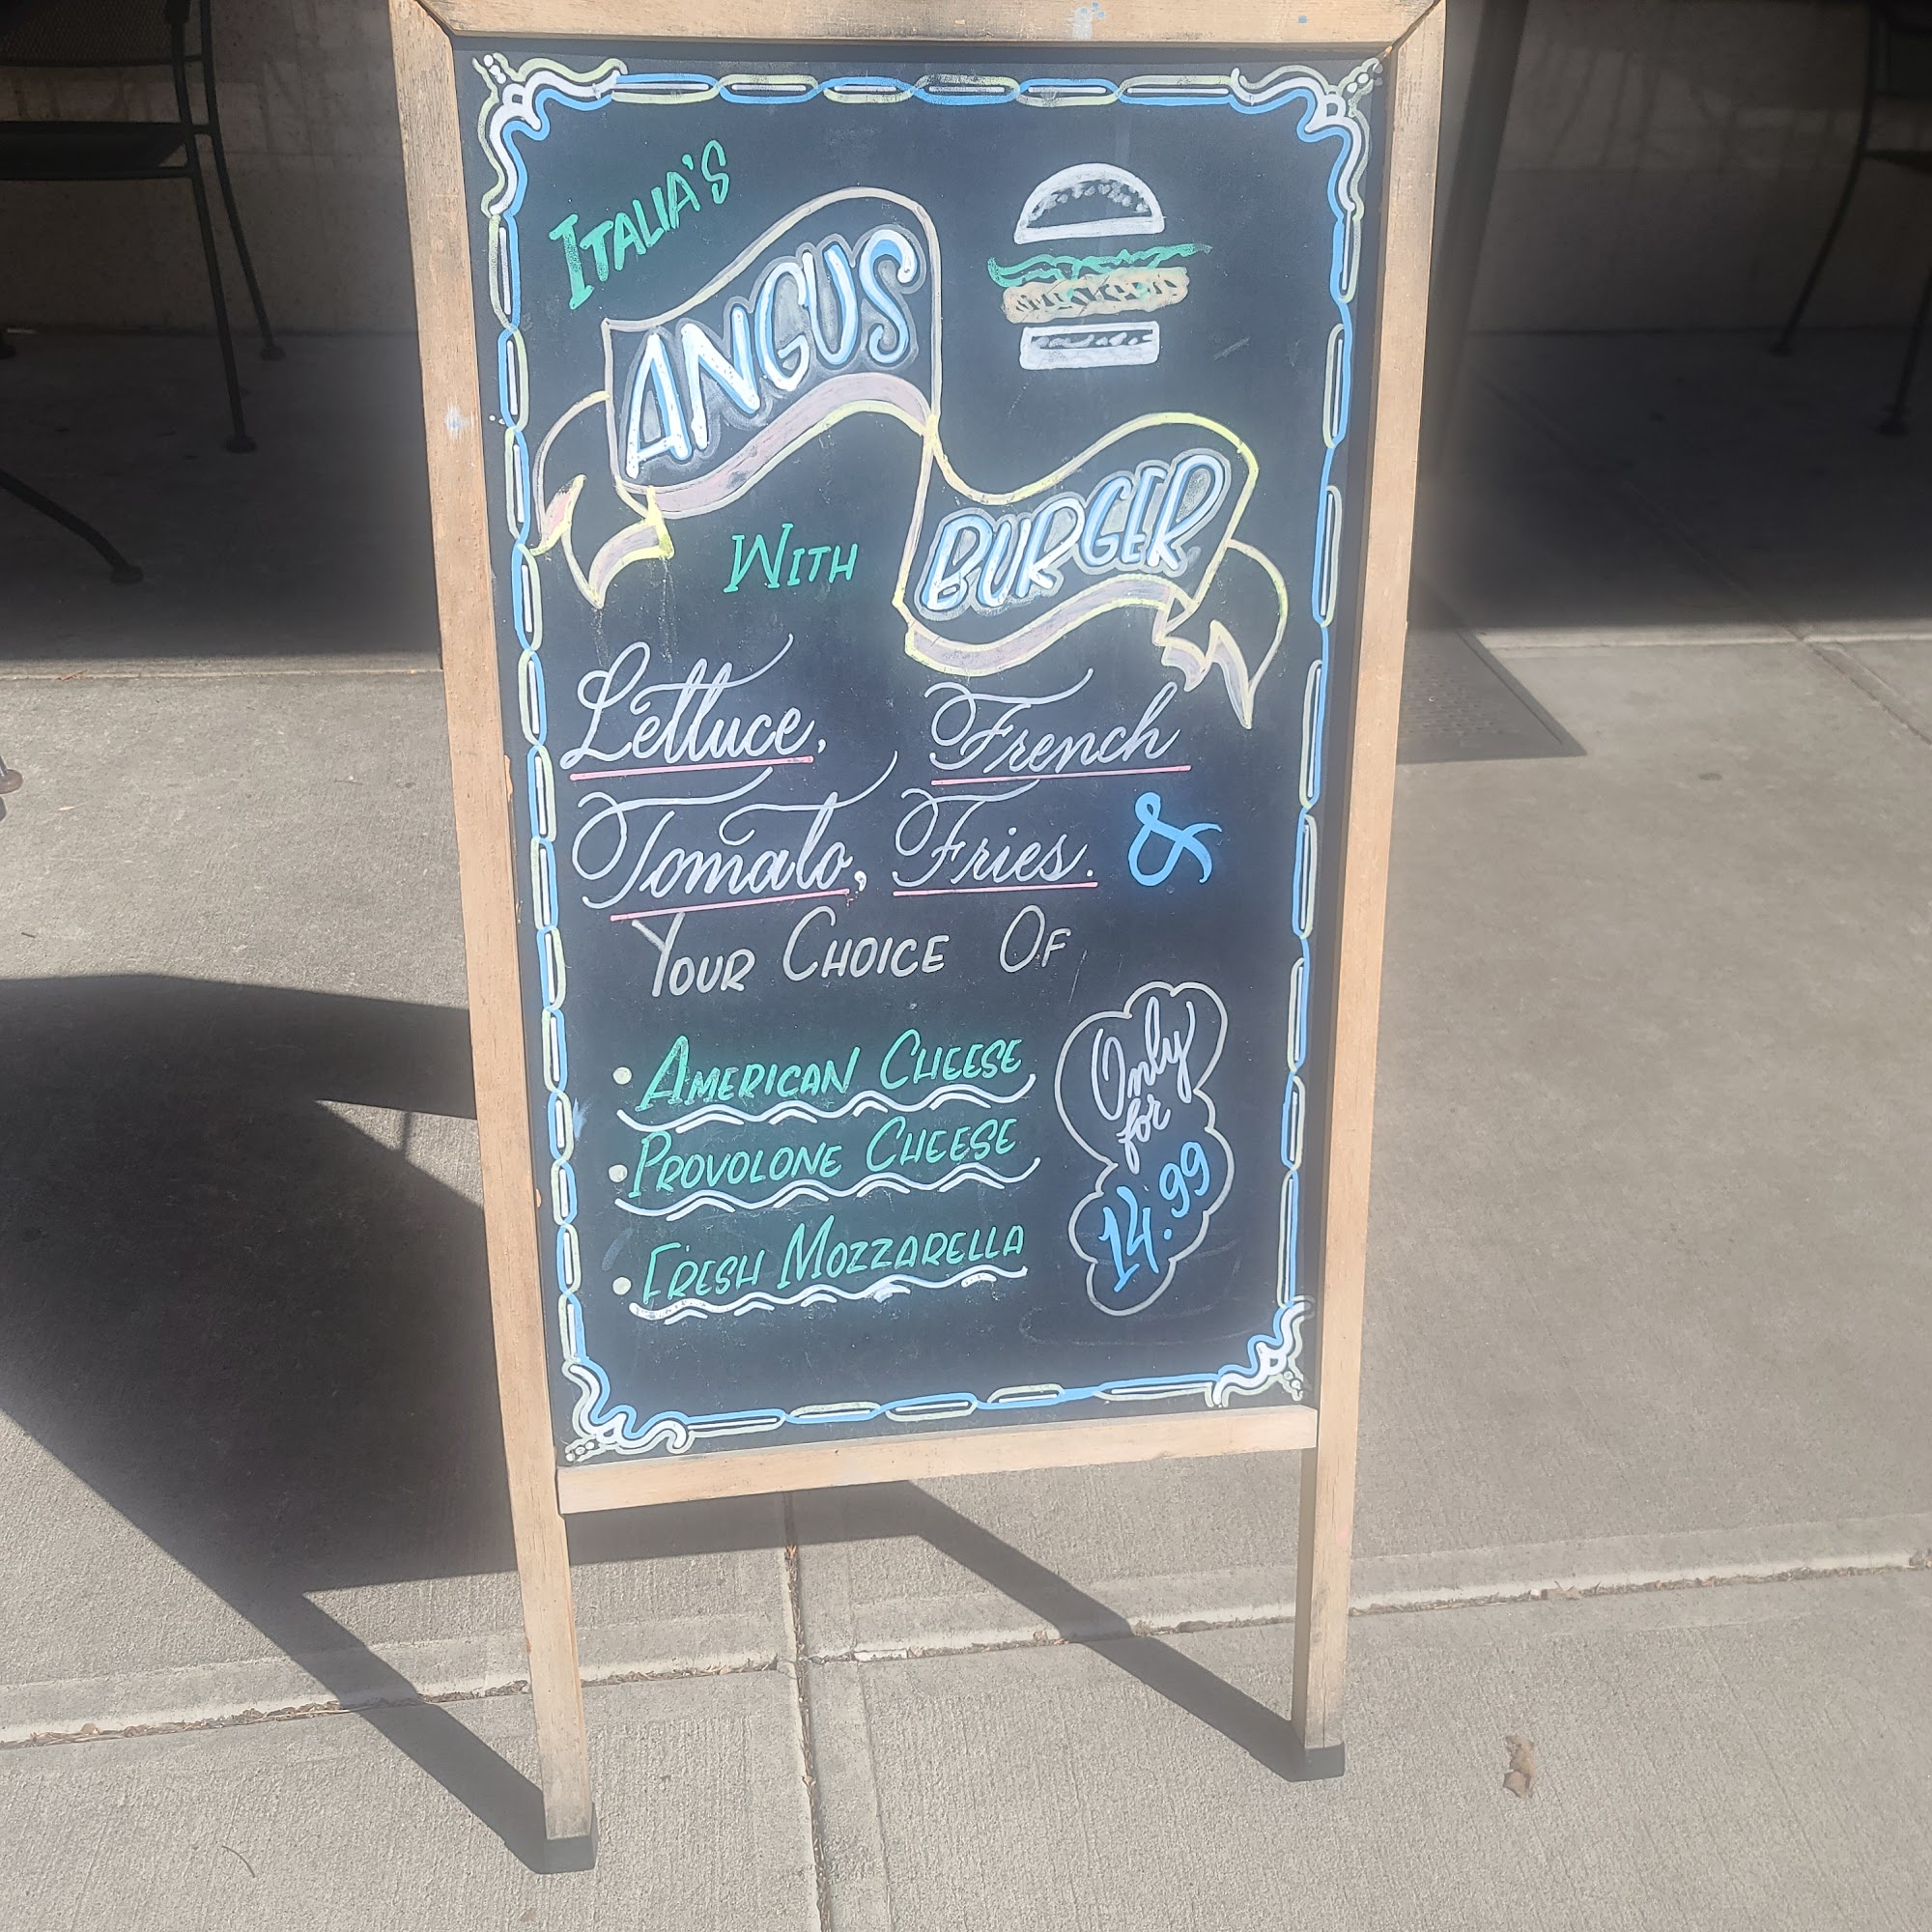 ITALIA'S
ANGUS
BURGER
WITH
Lettuce, French
Tomato, Fries. &
YOUR CHOICE OF
• AMERICAN CHEESE
• PROVOLONE CHEESE
• FRESH MOZZARELLA
Only
for
14.99